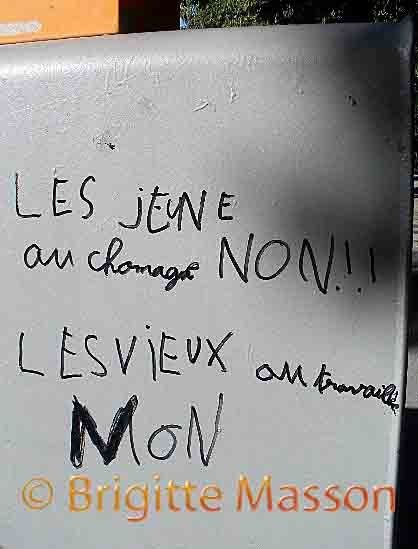 LES JEUNE
au chomage NON!!
LES VIEUX au travaille
MON
© Brigitte Masson